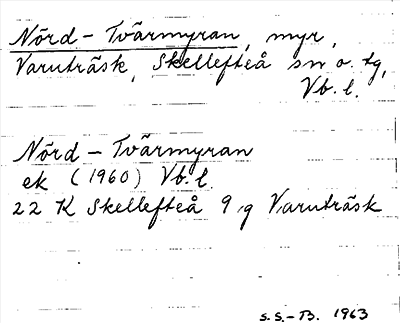 Nörd-Tvärmyran, myr,
Varuträsk, Skellefteå sn o. tg,
Vb. l.
Nörd-Tvärmyran
ek (1960) Vb. l.
22 K Skellefteå 9 g Varuträsk
S.S.-B. 1963